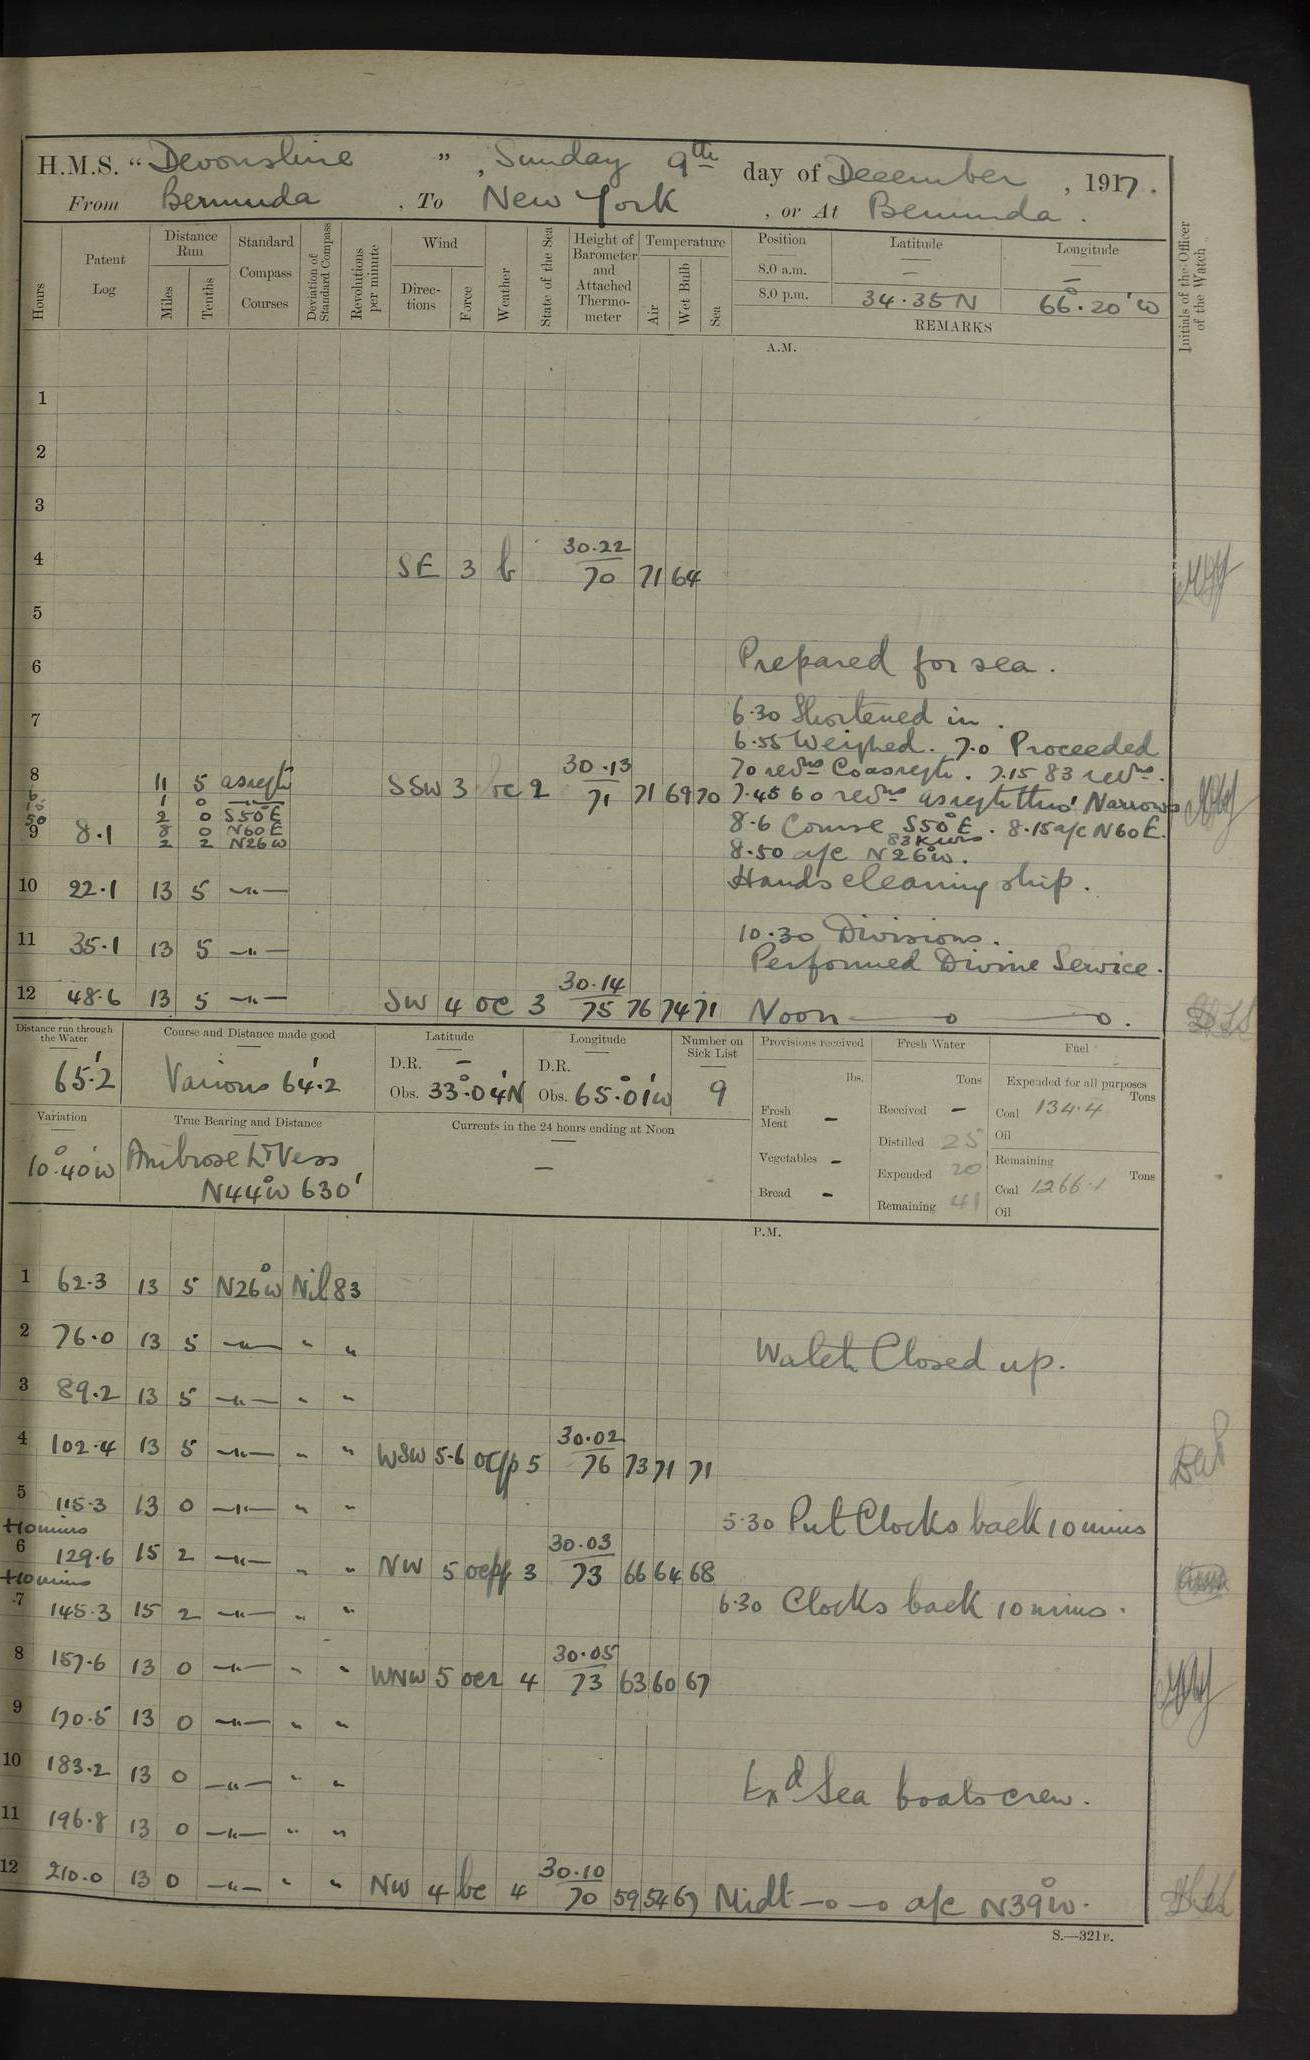 H.M.S. "Devonshire", Sunday 9th day of December, 1917.
From Bermuda, To New York, or At Bermuda.
Hours
Patent Log
Distance Run
Miles
Tenths
Standard Compass Courses
Deviation of Standard Compass
Revolutions per minute
Wind
Directions
Force
Weather
State of the Sea
Height of Barometer and Attached Thermometer
Temperature
Air
Wet Bulb
Sea
Position
Latitude
Longitude
8.0 a.m. — —
8.0 p.m. 34.35 N 66°.20' W
REMARKS
Initials of the Officer of the Watch
A.M.
1
2
3
4 SE 3 b 30.22 70 71 64
5
6 Prepared for sea.
7 6.30 Shortened in.
6.55 Weighed. 7.0 Proceeded
8 11 5 asreqte SSW 3 bc 2 30.13 71 71 69 70
70 revns Co asreqte. 7.15 83 revns.
6 1 0 —"—
7.45 60 revns asreqte thro' Narrows
15 2 0 S50°E
8.6 Course S50°E. 8.15 a/c N60E.
50 8 0 N60E
83 revns
9 8.1 2 2 N26W
8.50 a/c N26°W.
10 22.1 13 5 —"— Hands cleaning ship.
11 35.1 13 5 —"— 10.30 Divisions.
Performed Divine Service.
12 48.6 13 5 —"— SW 4 oc 3 30.14 75 76 74 71 Noon —o—o.
Distance run through the Water
65'.2
Course and Distance made good
Various 64'.2
Latitude
D.R. —
Obs. 33°.04'N
Longitude
D.R.
Obs. 65°.01'W
Number on Sick List
9
Provisions received
lbs.
Fresh Meat —
Vegetables —
Bread —
Fresh Water
Tons
Received —
Distilled 25
Expended 20
Remaining 41
Fuel
Expended for all purposes
Tons
Coal 134.4
Oil
Remaining
Tons
Coal 1266.1
Oil
Variation
10°.40'W
True Bearing and Distance
Ambrose Lt Vess
N44°W 630'
Currents in the 24 hours ending at Noon
—
P.M.
1 62.3 13 5 N26°W Nil 83
2 76.0 13 5 —"— " " Watch Closed up.
3 89.2 13 5 —"— " "
4 102.4 13 5 —"— " " WSW 5-6 oc/p 5 30.02 76 73 71 71
5 115.3 13 0 —"— " " 5.30 Put Clocks back 10 mins
+10 mins
6 129.6 15 2 —"— " " NW 5 30.03 73 66 64 68
+10 mins
6.30 Clocks back 10 mins.
7 145.3 15 2 —"— " "
8 157.6 13 0 —"— " " WNW 5 ocr 4 30.05 73 63 60 67
9 170.5 13 0 —"— " "
10 183.2 13 0 —"— " " Exd Sea boats crew.
11 196.8 13 0 —"— " "
12 210.0 13 0 —"— " " NW 4 bc 4 30.10 70 59 54 67 Midt —o—o a/c N39°W.
S.—321B.